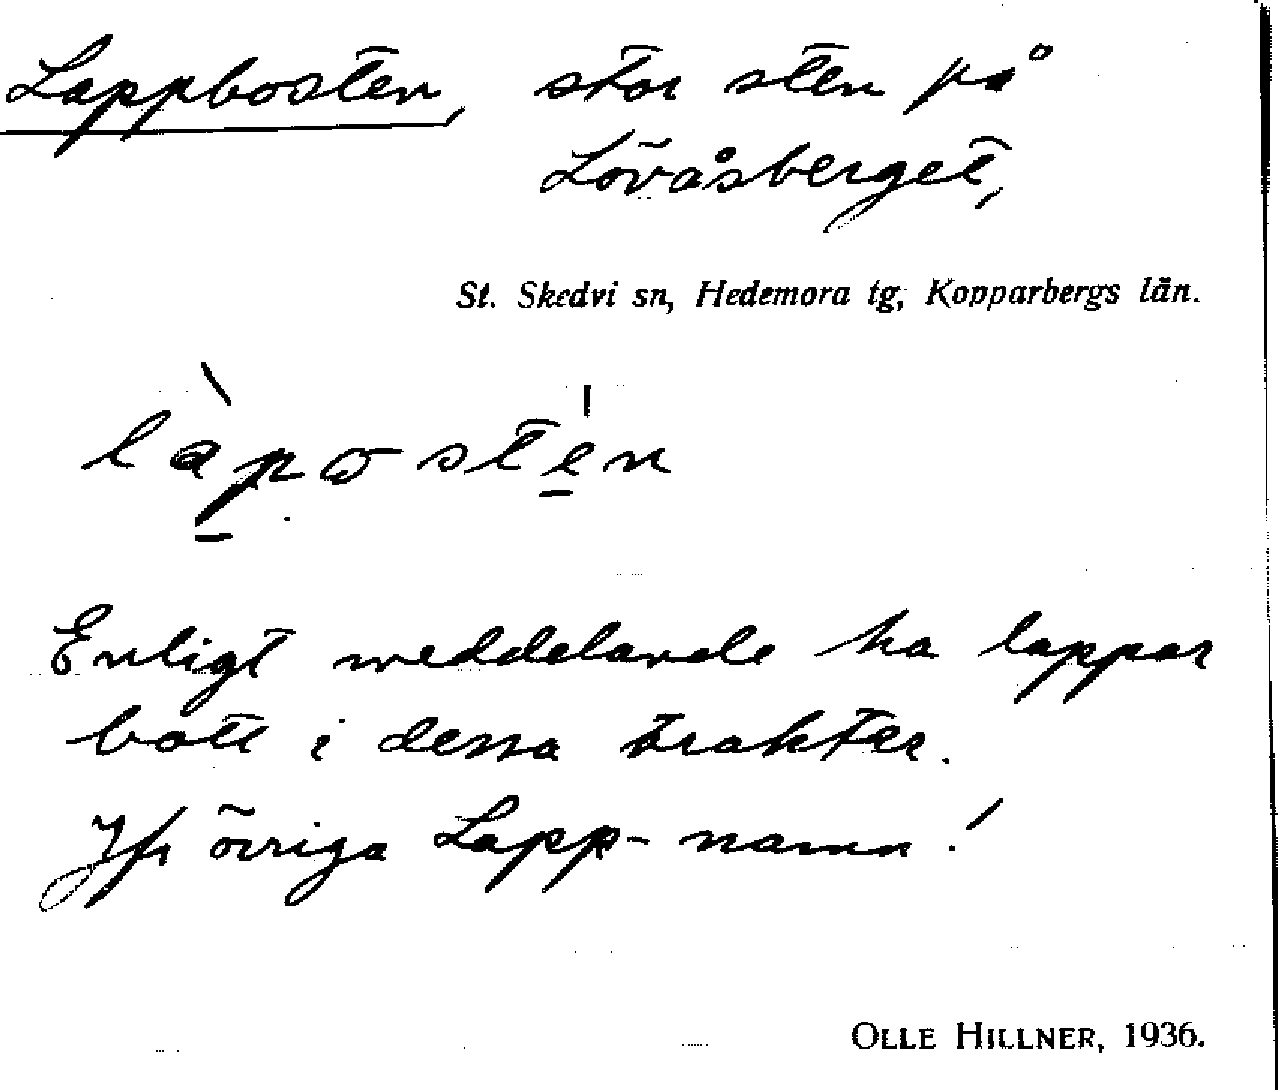 Lappbosten, stor sten på
Lövåsberget,
St. Skedvi sn, Hedemora tg, Kopparbergs län.
làpostén
Enligt meddelande ha lappar
bott i dessa trakter.
Jfr övriga Lapp-namn!
OLLE HILLNER, 1936.